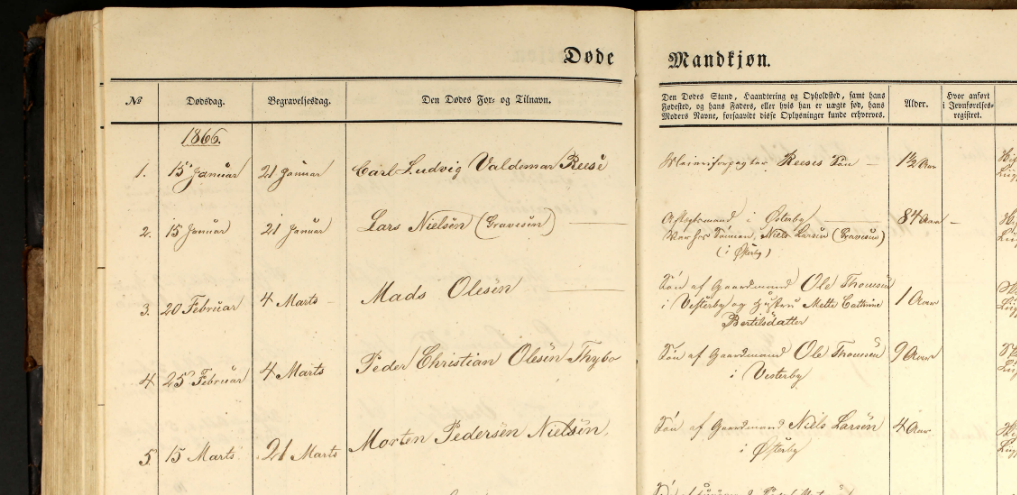 Døde Mandkjøn.
№ Dødsdag. Begravelsesdag. Den Dødes For- og Tilnavn. Den Dødes Stand, Haandtering og Opholdsted, samt hans Alder. Hvor anført
Fødested, og hans Faders, eller hvis han er uægte fød, hans i Jevnførelses-
Moders Navne, forsaavidt disse Oplysninger kunde erhverves. registret.
1866.
1. 15 Januar 21 Januar Carl Ludvig Valdemar Reese Reeses Søn — 1½ Aar
2. 15 Januar 21 Januar Lars Nielsen (Gravesen) Aftægtsmand i Østerby 84 Aar —
hos Sønnen, Niels Larsen (Gravesen)
(i Østerby)
3. 20 Februar 4 Marts – Mads Olesen Søn af Gaardmand Ole Thomsen
i Vesterby og Hustru Mette Cathrine 1 Aar
Bertilsdatter
4. 25 Februar 4 Marts Peder Christian Olesen Thybo Søn af Gaardmand Ole Thomsen 9 Aar
i Vesterby
5. 15 Marts. 21 Marts Morten Pedersen Nielsen. Søn af Gaardmand Niels Larsen 4 Aar
i Østerby